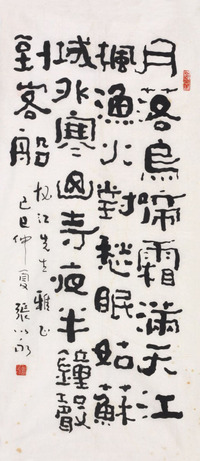 月落烏啼霜滿天江
楓漁火對愁眠姑蘇
城外寒山寺夜半鐘聲
到客船
江先生雅正
己巳仲夏張